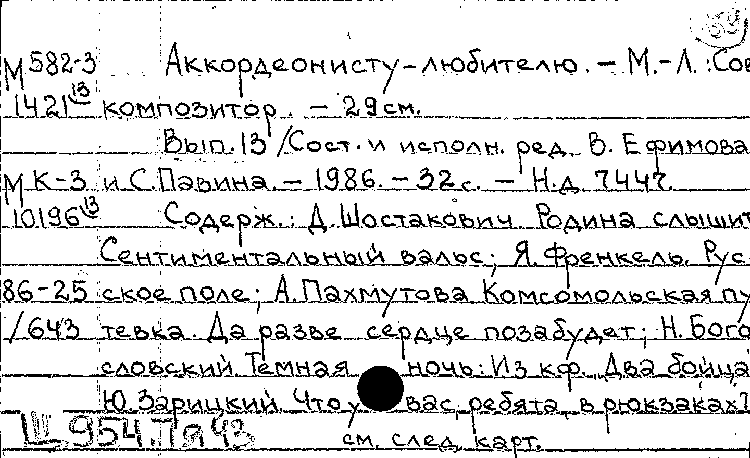 М 582-3 Аккордеонисту-любителю. – М.-Л. : Сов
1421 13 композитор. – 29 см.
Вып. 13 / Сост. и исполн. ред. В. Ефимова
М К-3 и С. Павина. – 1986. – 32 с. – Н.д. 7447.
10196 13 Содерж.: Д. Шостакович. Родина слышит
Сентиментальный вальс; Я. Френкель. Рус-
86-25 ское поле; А. Пахмутова. Комсомольская пу
/643 тевка. Да разве сердце позабудет; Н. Бого
словский Темная ночь: Из кф. Два бойца
Ю. Зарицкий. Что у вас, ребята, в рюкзаках?
954.
см. след. карт.